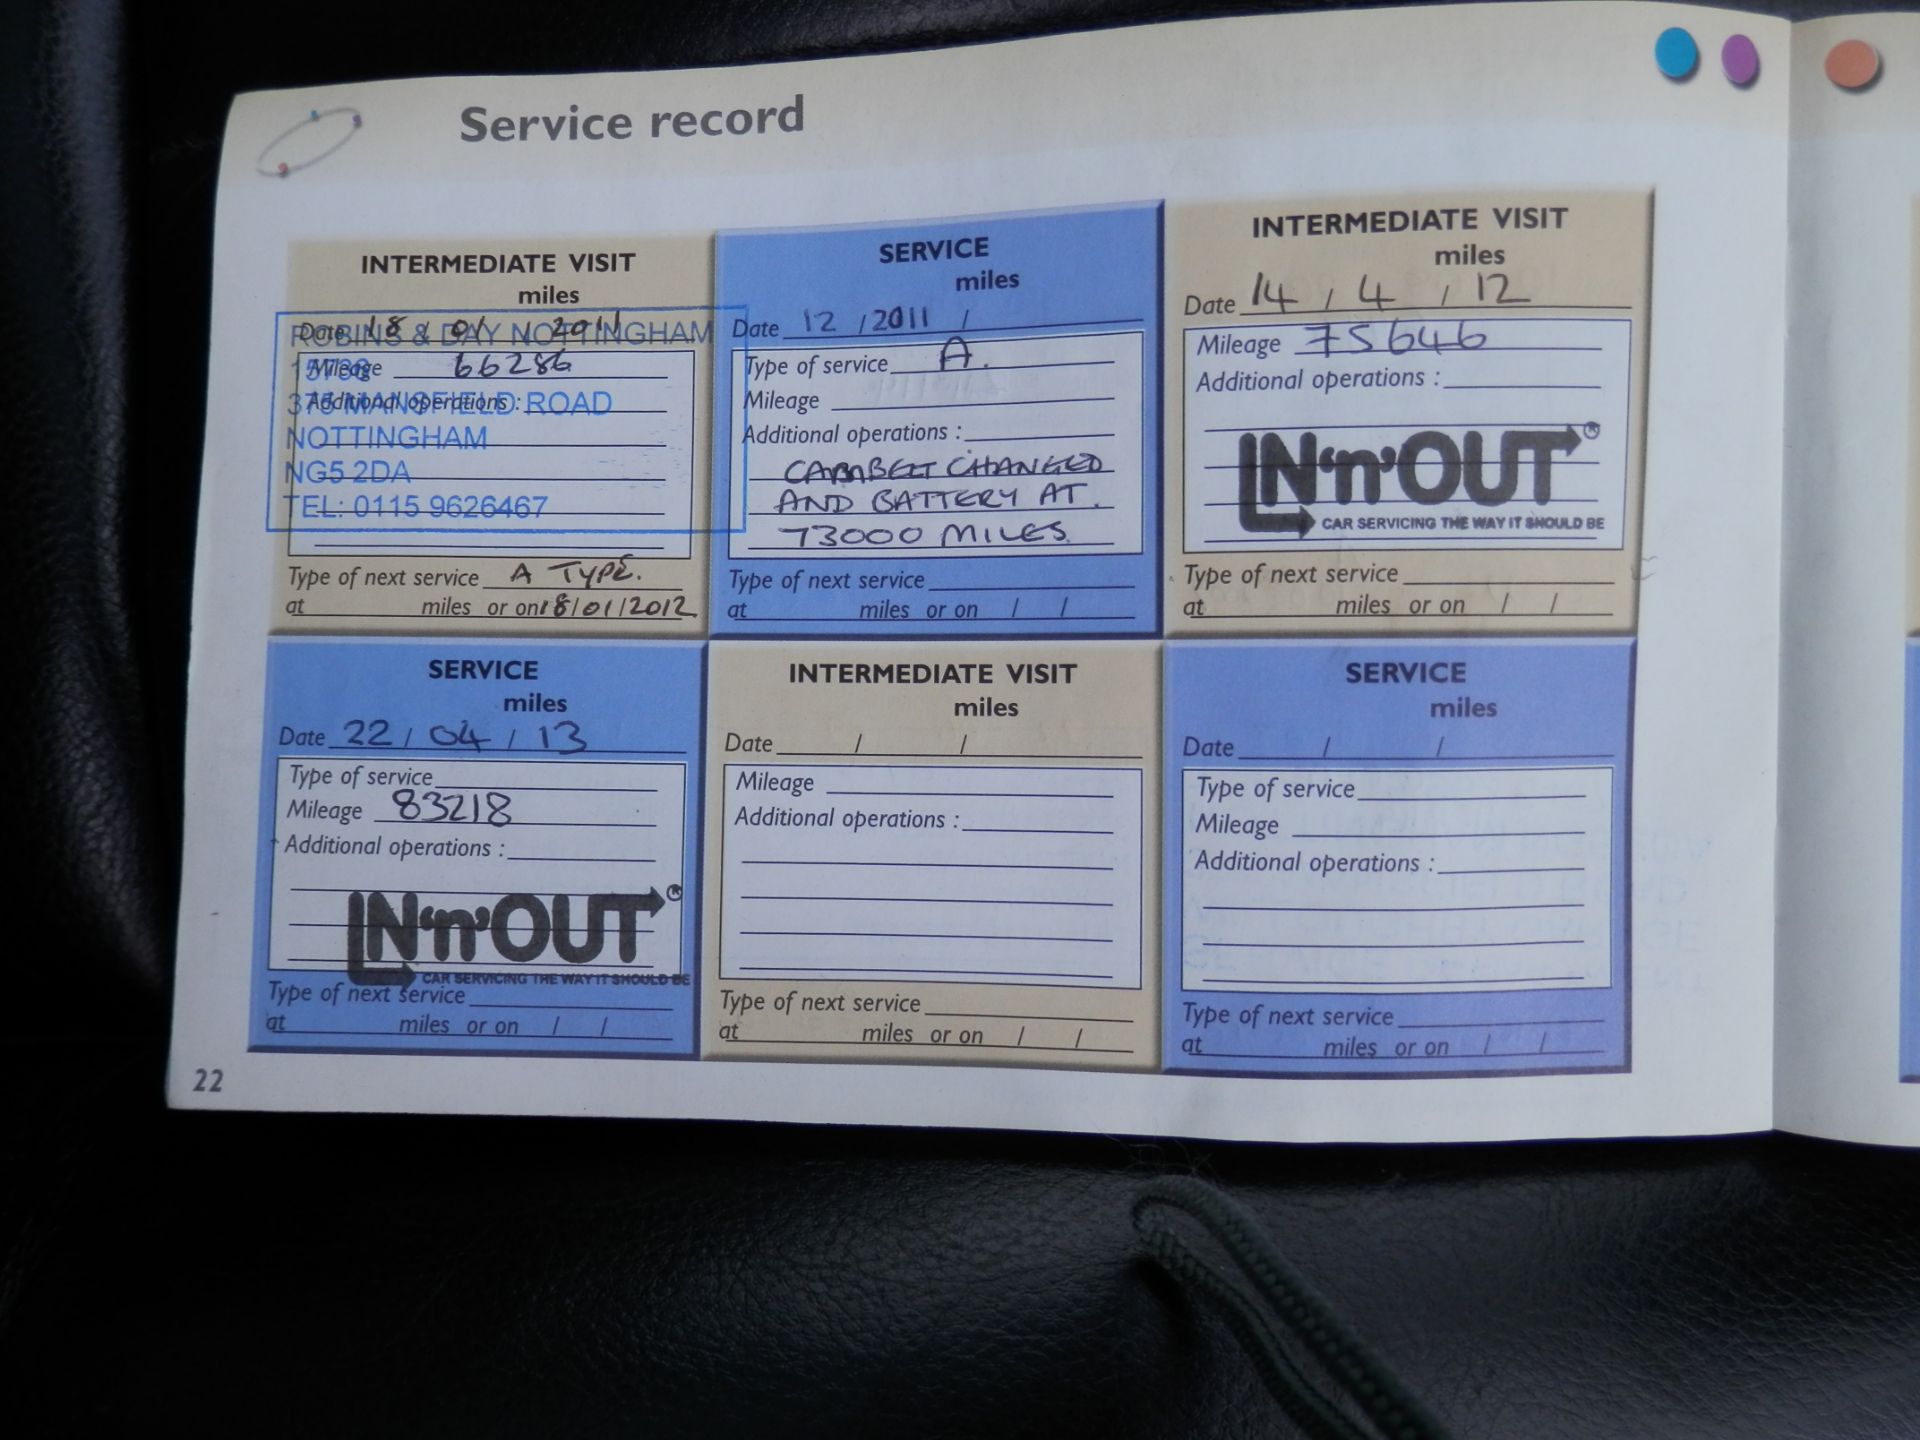 Service record
INTERMEDIATE VISIT
miles
Date 18 / 01 / 2011
Mileage 66286
Additional operations :
ROBINS & DAY NOTTINGHAM
375 MANSFIELD ROAD
NOTTINGHAM
NG5 2DA
TEL: 0115 9626467
Type of next service A TYPE.
at miles or on 18/01/2012
SERVICE
miles
Date 12 / 2011 /
Type of service A.
Mileage
Additional operations :
CAMBELT CHANGED
AND BATTERY AT.
73000 MILES.
Type of next service
at miles or on / /
INTERMEDIATE VISIT
miles
Date 14 / 4 / 12
Mileage 75646
Additional operations :
IN'n'OUT®
CAR SERVICING THE WAY IT SHOULD BE
Type of next service
at miles or on / /
SERVICE
miles
Date 22 / 04 / 13
Type of service
Mileage 83218
Additional operations :
IN'n'OUT®
CAR SERVICING THE WAY IT SHOULD BE
Type of next service
at miles or on / /
INTERMEDIATE VISIT
miles
Date / /
Mileage
Additional operations :
Type of next service
at miles or on / /
SERVICE
miles
Date / /
Type of service
Mileage
Additional operations :
Type of next service
at miles or on / /
22